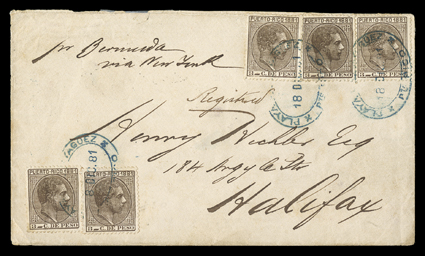 PUERTO-RICO 1881 PUERTO-RICO 1881 PUERTO-RICO 1881
8 C. DE PESO 8 C. DE PESO 8 C. DE PESO
pr Bermuda
via New York
18 D
PLAYA
Registered
Henry Wichler Esq
184 Argyle Str
Halifax
AGUEZ
DIC. 81
PUERTO-RICO 1881 PUERTO-RICO 1881
8 C. DE PESO 8 C. DE PESO